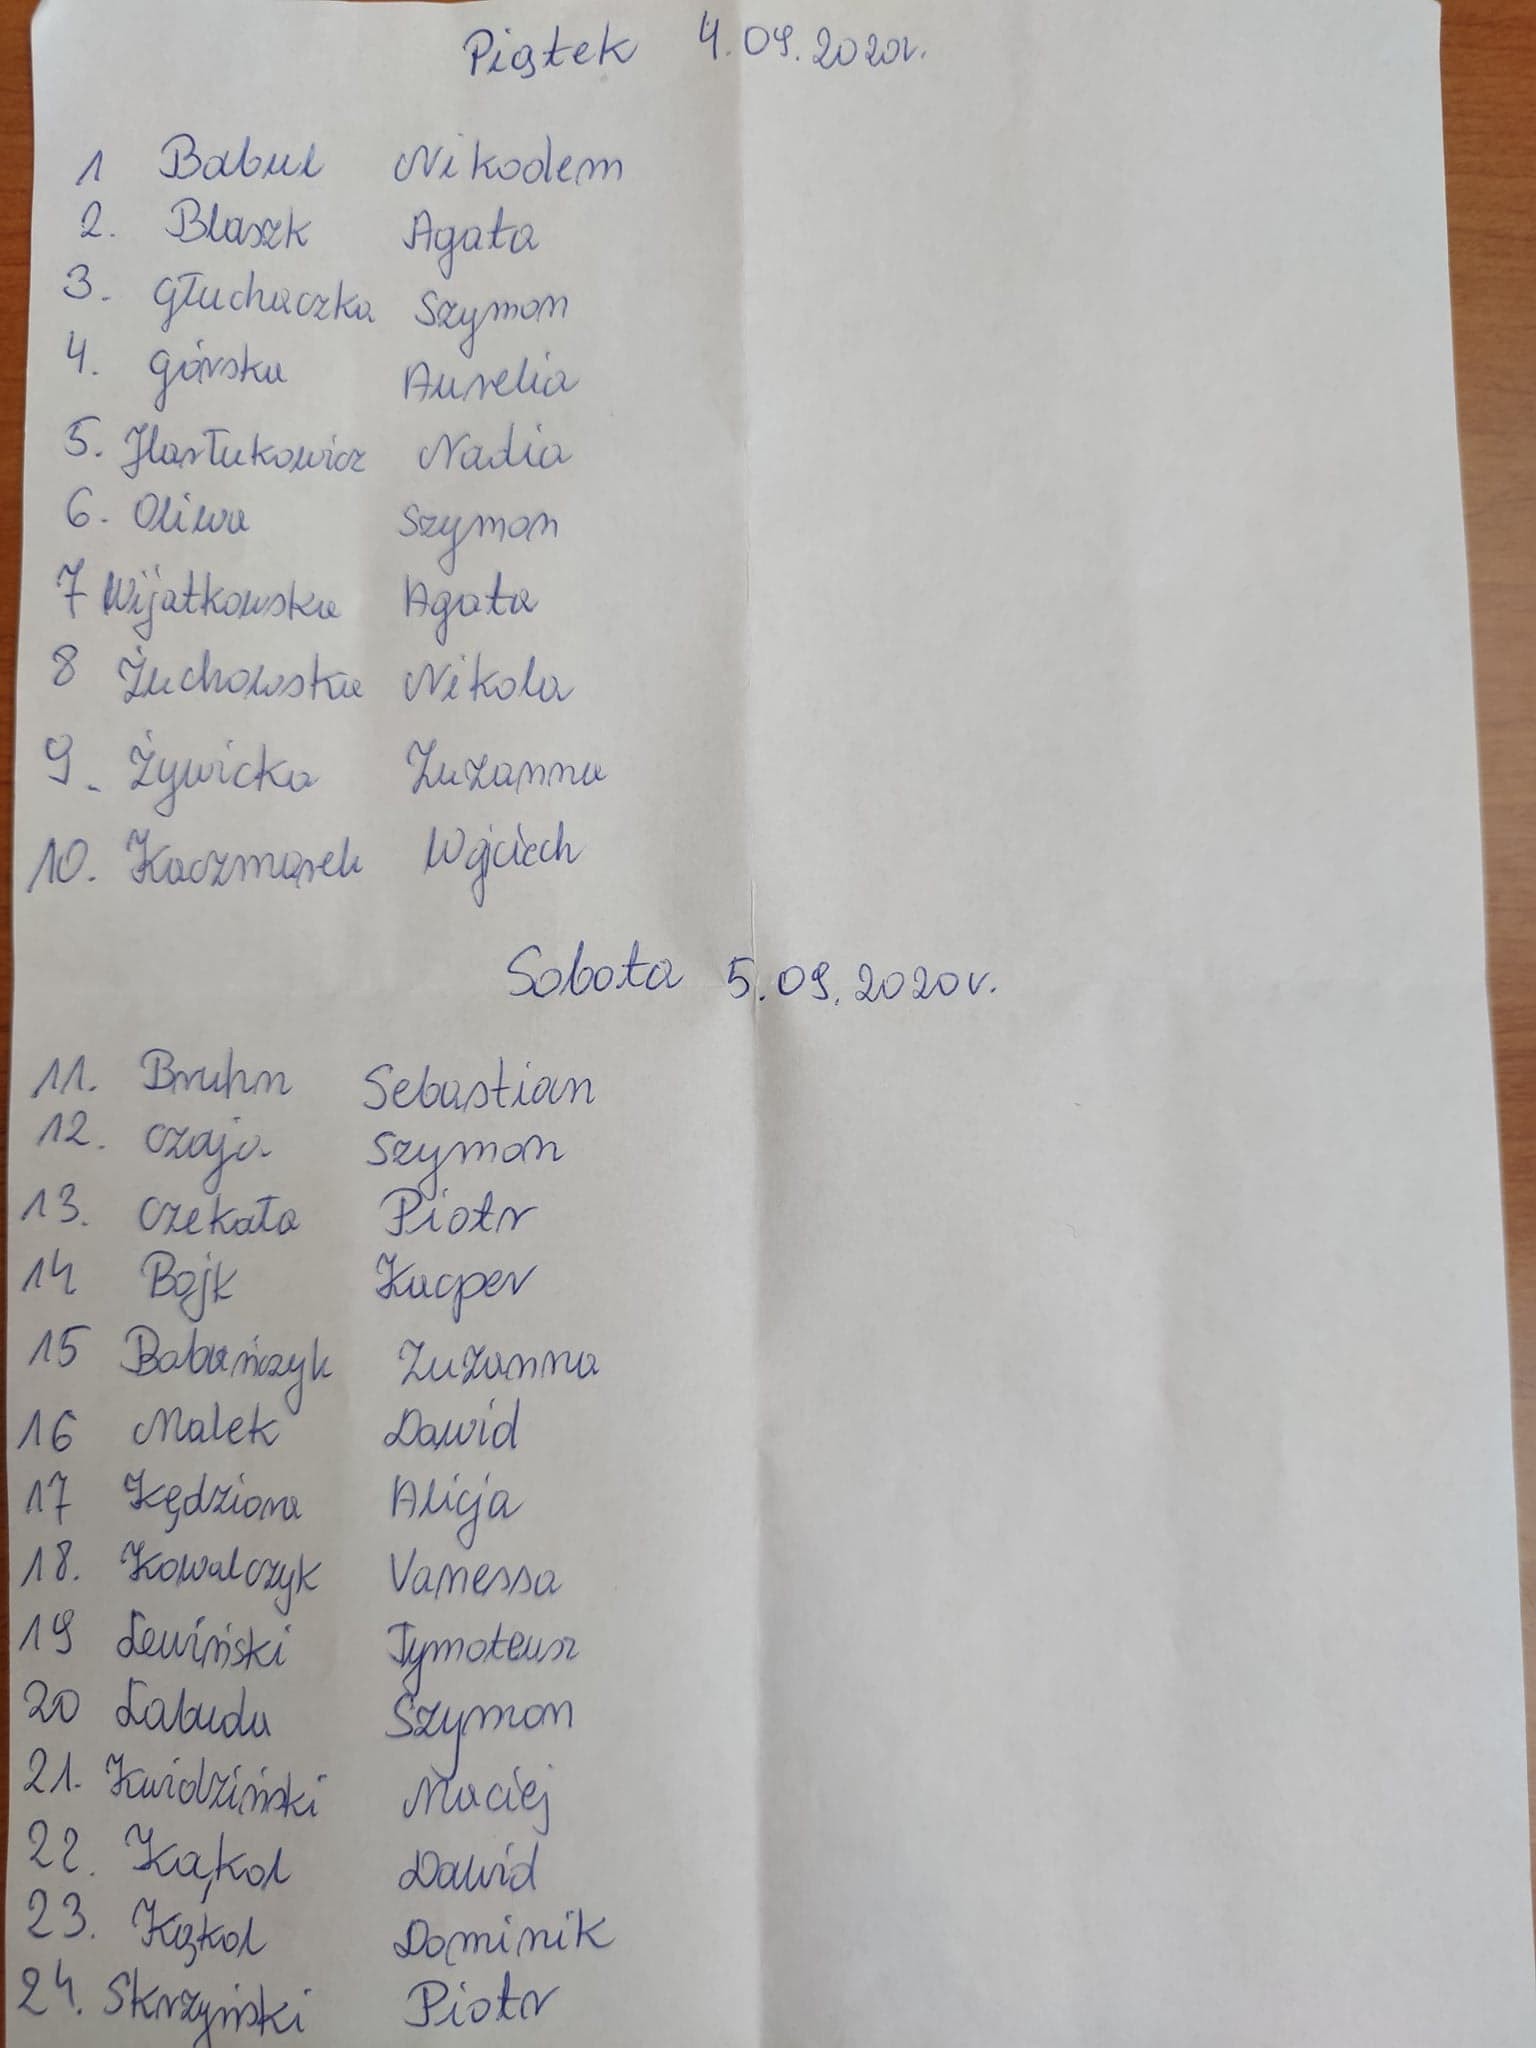 Piątek 4.09.2020r.
1 Babul Nikodem
2. Blaszk Agata
3. Głuchaczka Szymon
4. Górska Aurelia
5. Harłukowicz Nadia
6. Oliwa Szymon
7 Wijatkowska Agata
8 Żuchowska Nikola
9. Żywicka Zuzanna
10. Kaczmarek Wojciech
Sobota 5.09.2020r.
11. Bruhn Sebastian
12. Czaja Szymon
13. Czekała Piotr
14 Bojk Kacper
15 Babińczyk Zuzanna
16 Malek Dawid
17 Kędziora Alicja
18. Kowalczyk Vanessa
19 Lewiński Tymoteusz
20 Labuda Szymon
21. Kwidziński Maciej
22. Kąkol Dawid
23. Kąkol Dominik
24. Skrzyński Piotr